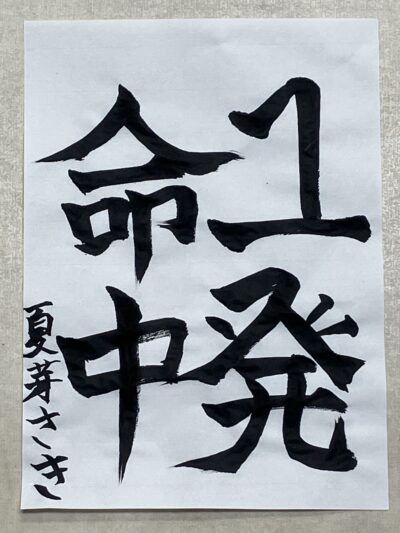 1発
命中
夏芽さき